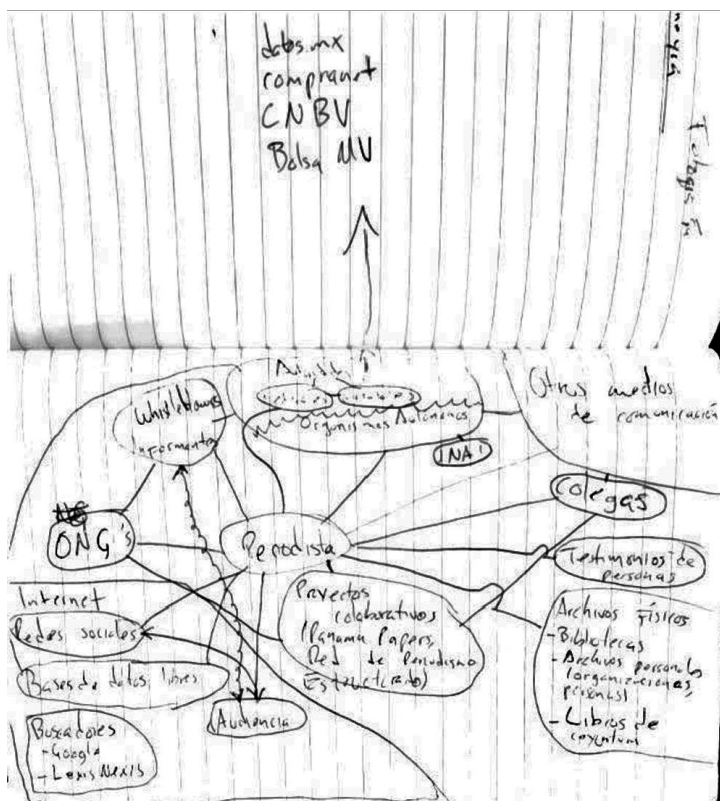 datos.mx
compranet
CNBV
Bolsa MV
Otros medios
de comunicación
Whistleblowers
Informantes
Organismos Autónomos
INAI
Colegas
ONG's
Periodista
Testimonios de
personas
Internet
Redes sociales
Bases de datos libres
Buscadores
- Google
- Lexis Nexis
Audiencia
Proyectos
colaborativos
(Panama Papers,
Red de Periodismo
Estructurado)
Archivos Físicos
- Bibliotecas
- Archivos personales
(organizaciones,
personas)
- Libros de